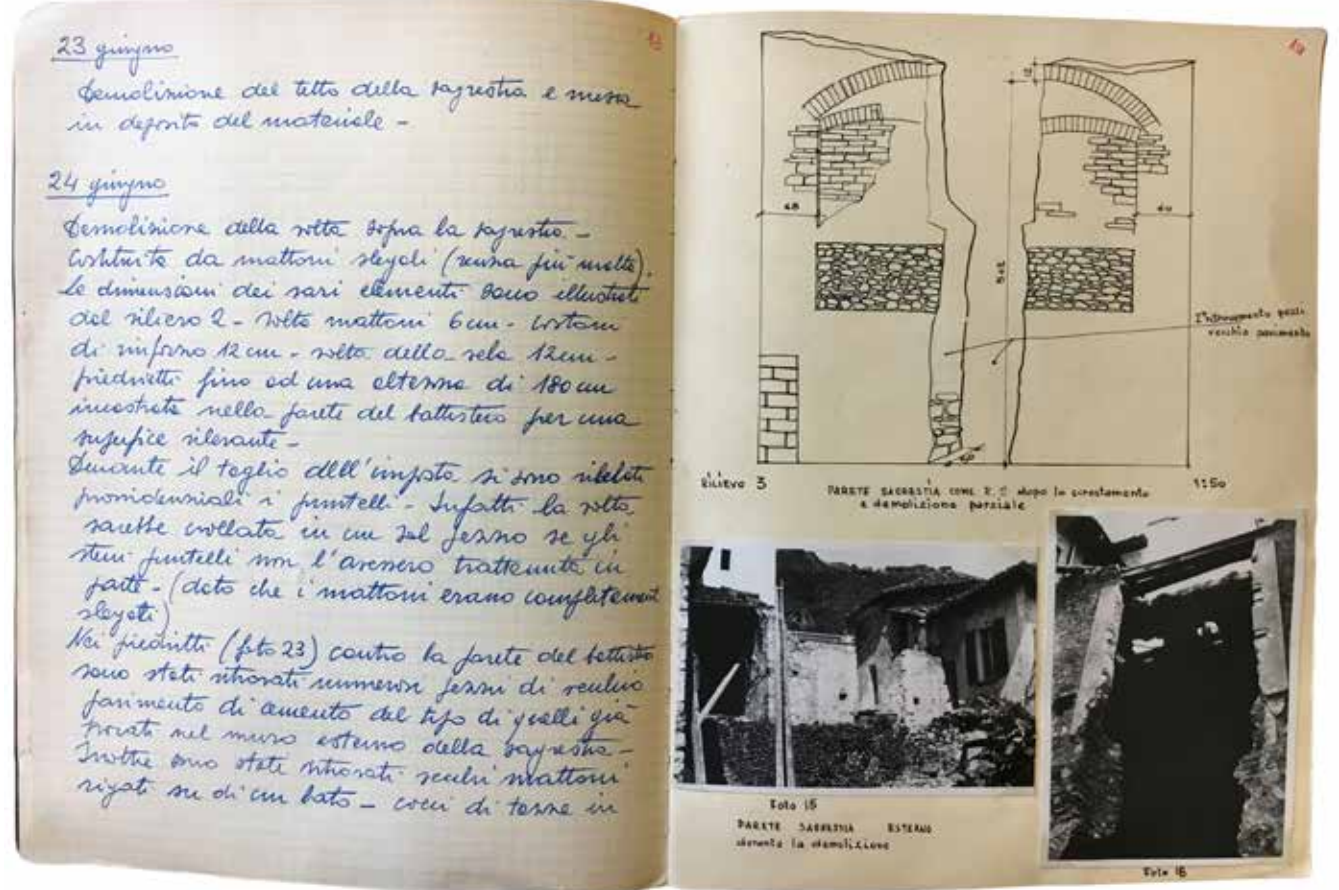 23 giugno
13
Demolizione del tetto della sagrestia e messa
in deposito del materiale -
24 giugno
Demolizione della volta sopra la sagrestia -
Costituita da mattoni slegati (senza più malta).
Le dimensioni dei vari elementi sono illustrati
dal rilievo 2 - volta mattoni 6 cm - costoni
di rinforzo 12 cm - volta della vela 12 cm -
piedritti fino ad una altezza di 180 cm
incastrata nella parete del battistero per una
superfice rilevante -
Durante il taglio dell'imposta si sono rilevati
provvidenziali i puntelli - Infatti la volta
sarebbe crollata in un sol pezzo se gli
stessi puntelli non l'avessero trattenuta in
parte - (dato che i mattoni erano completament
slegati)
Nei piedritti (foto 23) contro la parete del battistero
sono stati ritrovati numerosi pezzi di vecchio
pavimento di cemento del tipo di quelli già
trovati nel muro esterno della sagrestia -
Inoltre sono stati ritrovati vecchi mattoni
rigati su di un lato - cocci di tazze in
48
60
502
pezzi
vecchio pavimento
RILIEVO 3
PARETE SACRESTIA COME R. 2 dopo lo scrostamento
e demolizione parziale
1:50
Foto 15
PARETE SACRESTIA ESTERNO
durante la demolizione
Foto 16